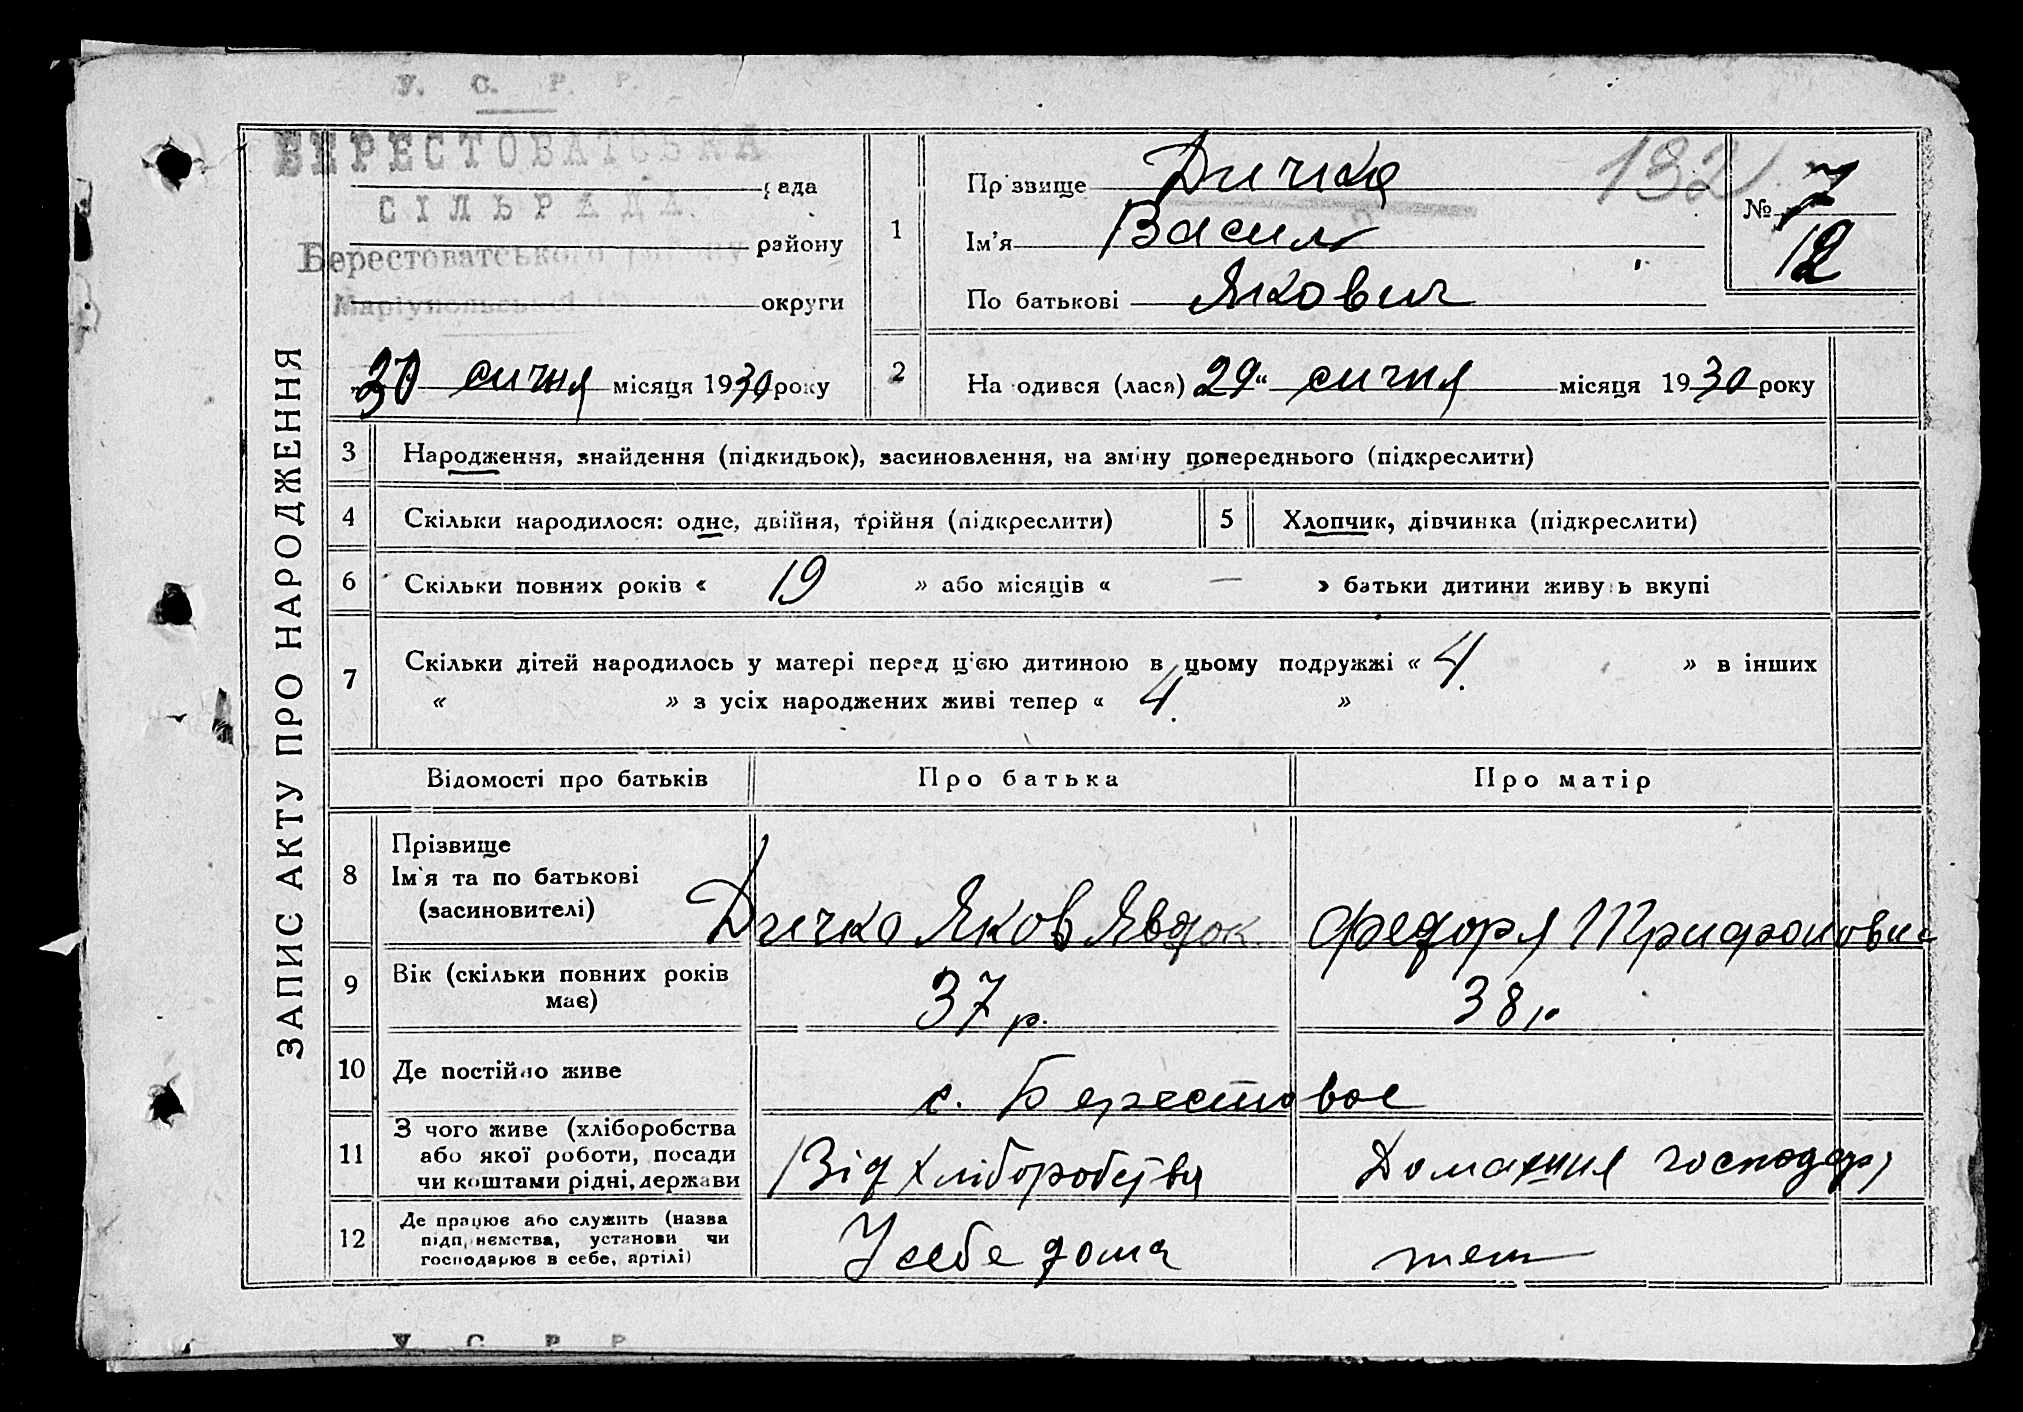 У. С. Р. Р.
БЕРЕСТОВАТСЬКА
рада
СІЛЬРАДА
району
Берестоватського району
округи
Маріупольської
„30 сичня місяця 1930 року
ЗАПИС АКТУ ПРО НАРОДЖЕННЯ
1
Прізвище Дичко
Ім'я Василь
По батькові Якович
132
№ 7
12
2
Народився (лася) 29“ сичня місяця 1930 року
3 Народження, знайдення (підкидьок), засиновлення, на зміну попереднього (підкреслити)
4 Скільки народилося: одне, двійня, трійня (підкреслити)
5 Хлопчик, дівчинка (підкреслити)
6 Скільки повних років « 19 » або місяців « — » батьки дитини живуть вкупі
7 Скільки дітей народилось у матері перед цією дитиною в цьому подружжі « 4. » в інших
« » з усіх народжених живі тепер « 4. »
Відомості про батьків Про батька Про матір
8 Прізвище
Ім'я та по батькові
(засиновителі)
Дичко Яков Явдок. Федоря Трифонович
9 Вік (скільки повних років
має)
37 р. 38 р.
10 Де постійно живе с. Берестовое
11 З чого живе (хліборобства
або якої роботи, посади
чи коштами рідні, держави
Від хліборобства Домашня господар
12 Де працює або служить (назва
підприємства, установи чи
господарює в себе, артілі)
У себе дома теж
У. С. Р. Р.